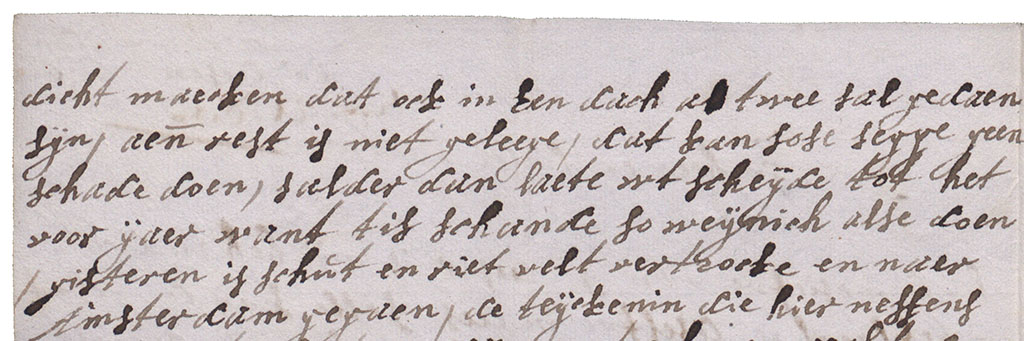 dicht maecken dat ock in een dach a twee sal gedaen
syn, aen rest is niet geleege, dat kan sose segge geen
schade doen, salder dan laete wt scheyde tot het
voor yaer want tis schande so weynich alse doen
/ gisteren is schut en riet velt vertrocke en naer
Amsterdam gegaen, de teyckenin die hier neffens